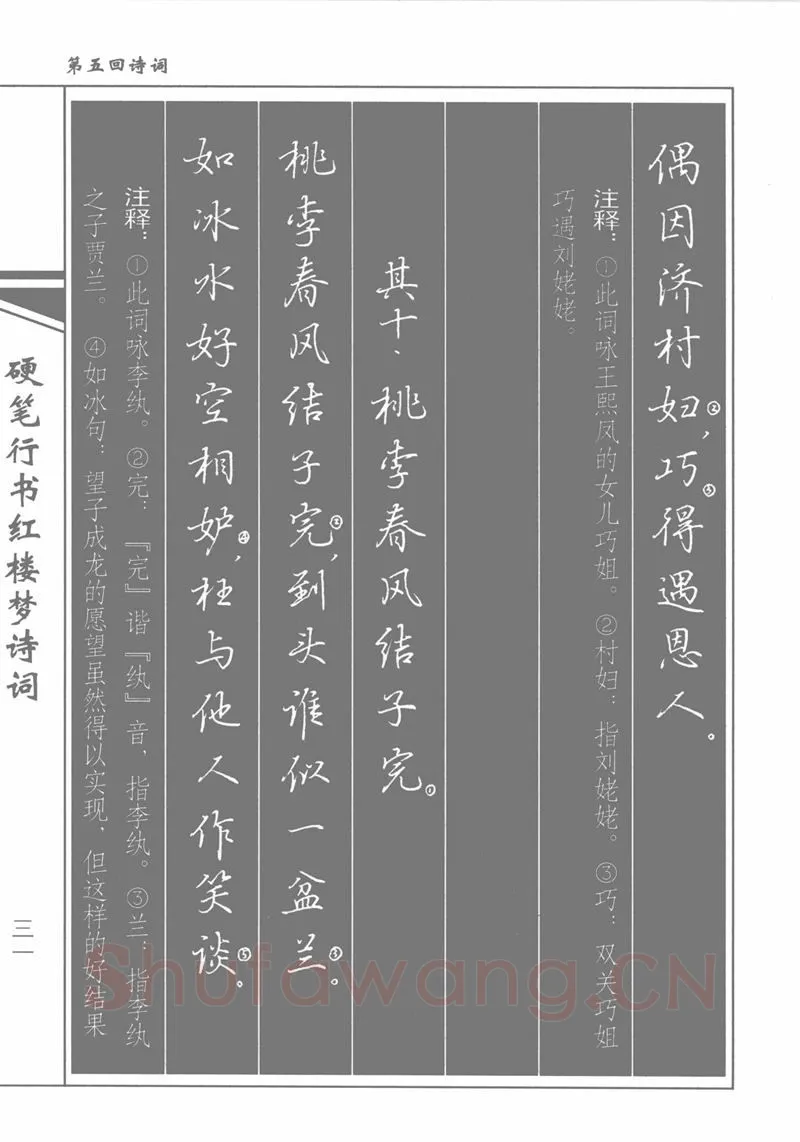 第五回诗词
偶因济村妇②，巧③得遇恩人。
注释：①此词咏王熙凤的女儿巧姐。②村妇：指刘姥姥。③巧：双关巧姐
巧遇刘姥姥。
其十、桃李春风结子完①。
桃李春风结子完②，到头谁似一盆兰③。
如冰水好空相妒④，枉与他人作笑谈⑤。
注释：①此词咏李纨。②完：『完』谐『纨』音，指李纨。③兰：指李纨
之子贾兰。④如冰句：望子成龙的愿望虽然得以实现，但这样的好结果
硬笔行书红楼梦诗词
三一
Shufawang.CN